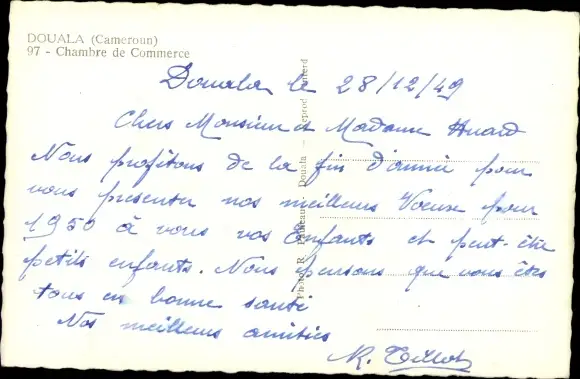 DOUALA (Cameroun)
97 - Chambre de Commerce
Douala le 28/12/49
Chers Monsieur et Madame Huard
Nous profitons de la fin d'année pour
vous présenter nos meilleurs Voeux pour
1950 à vous vos Enfants et peut-être
petits enfants. Nous pensons que vous êtes
tous en bonne santé.
Nos meilleures amitiés
R. Tillot
Photo R. Pauleau, Douala - Reprod. Interd